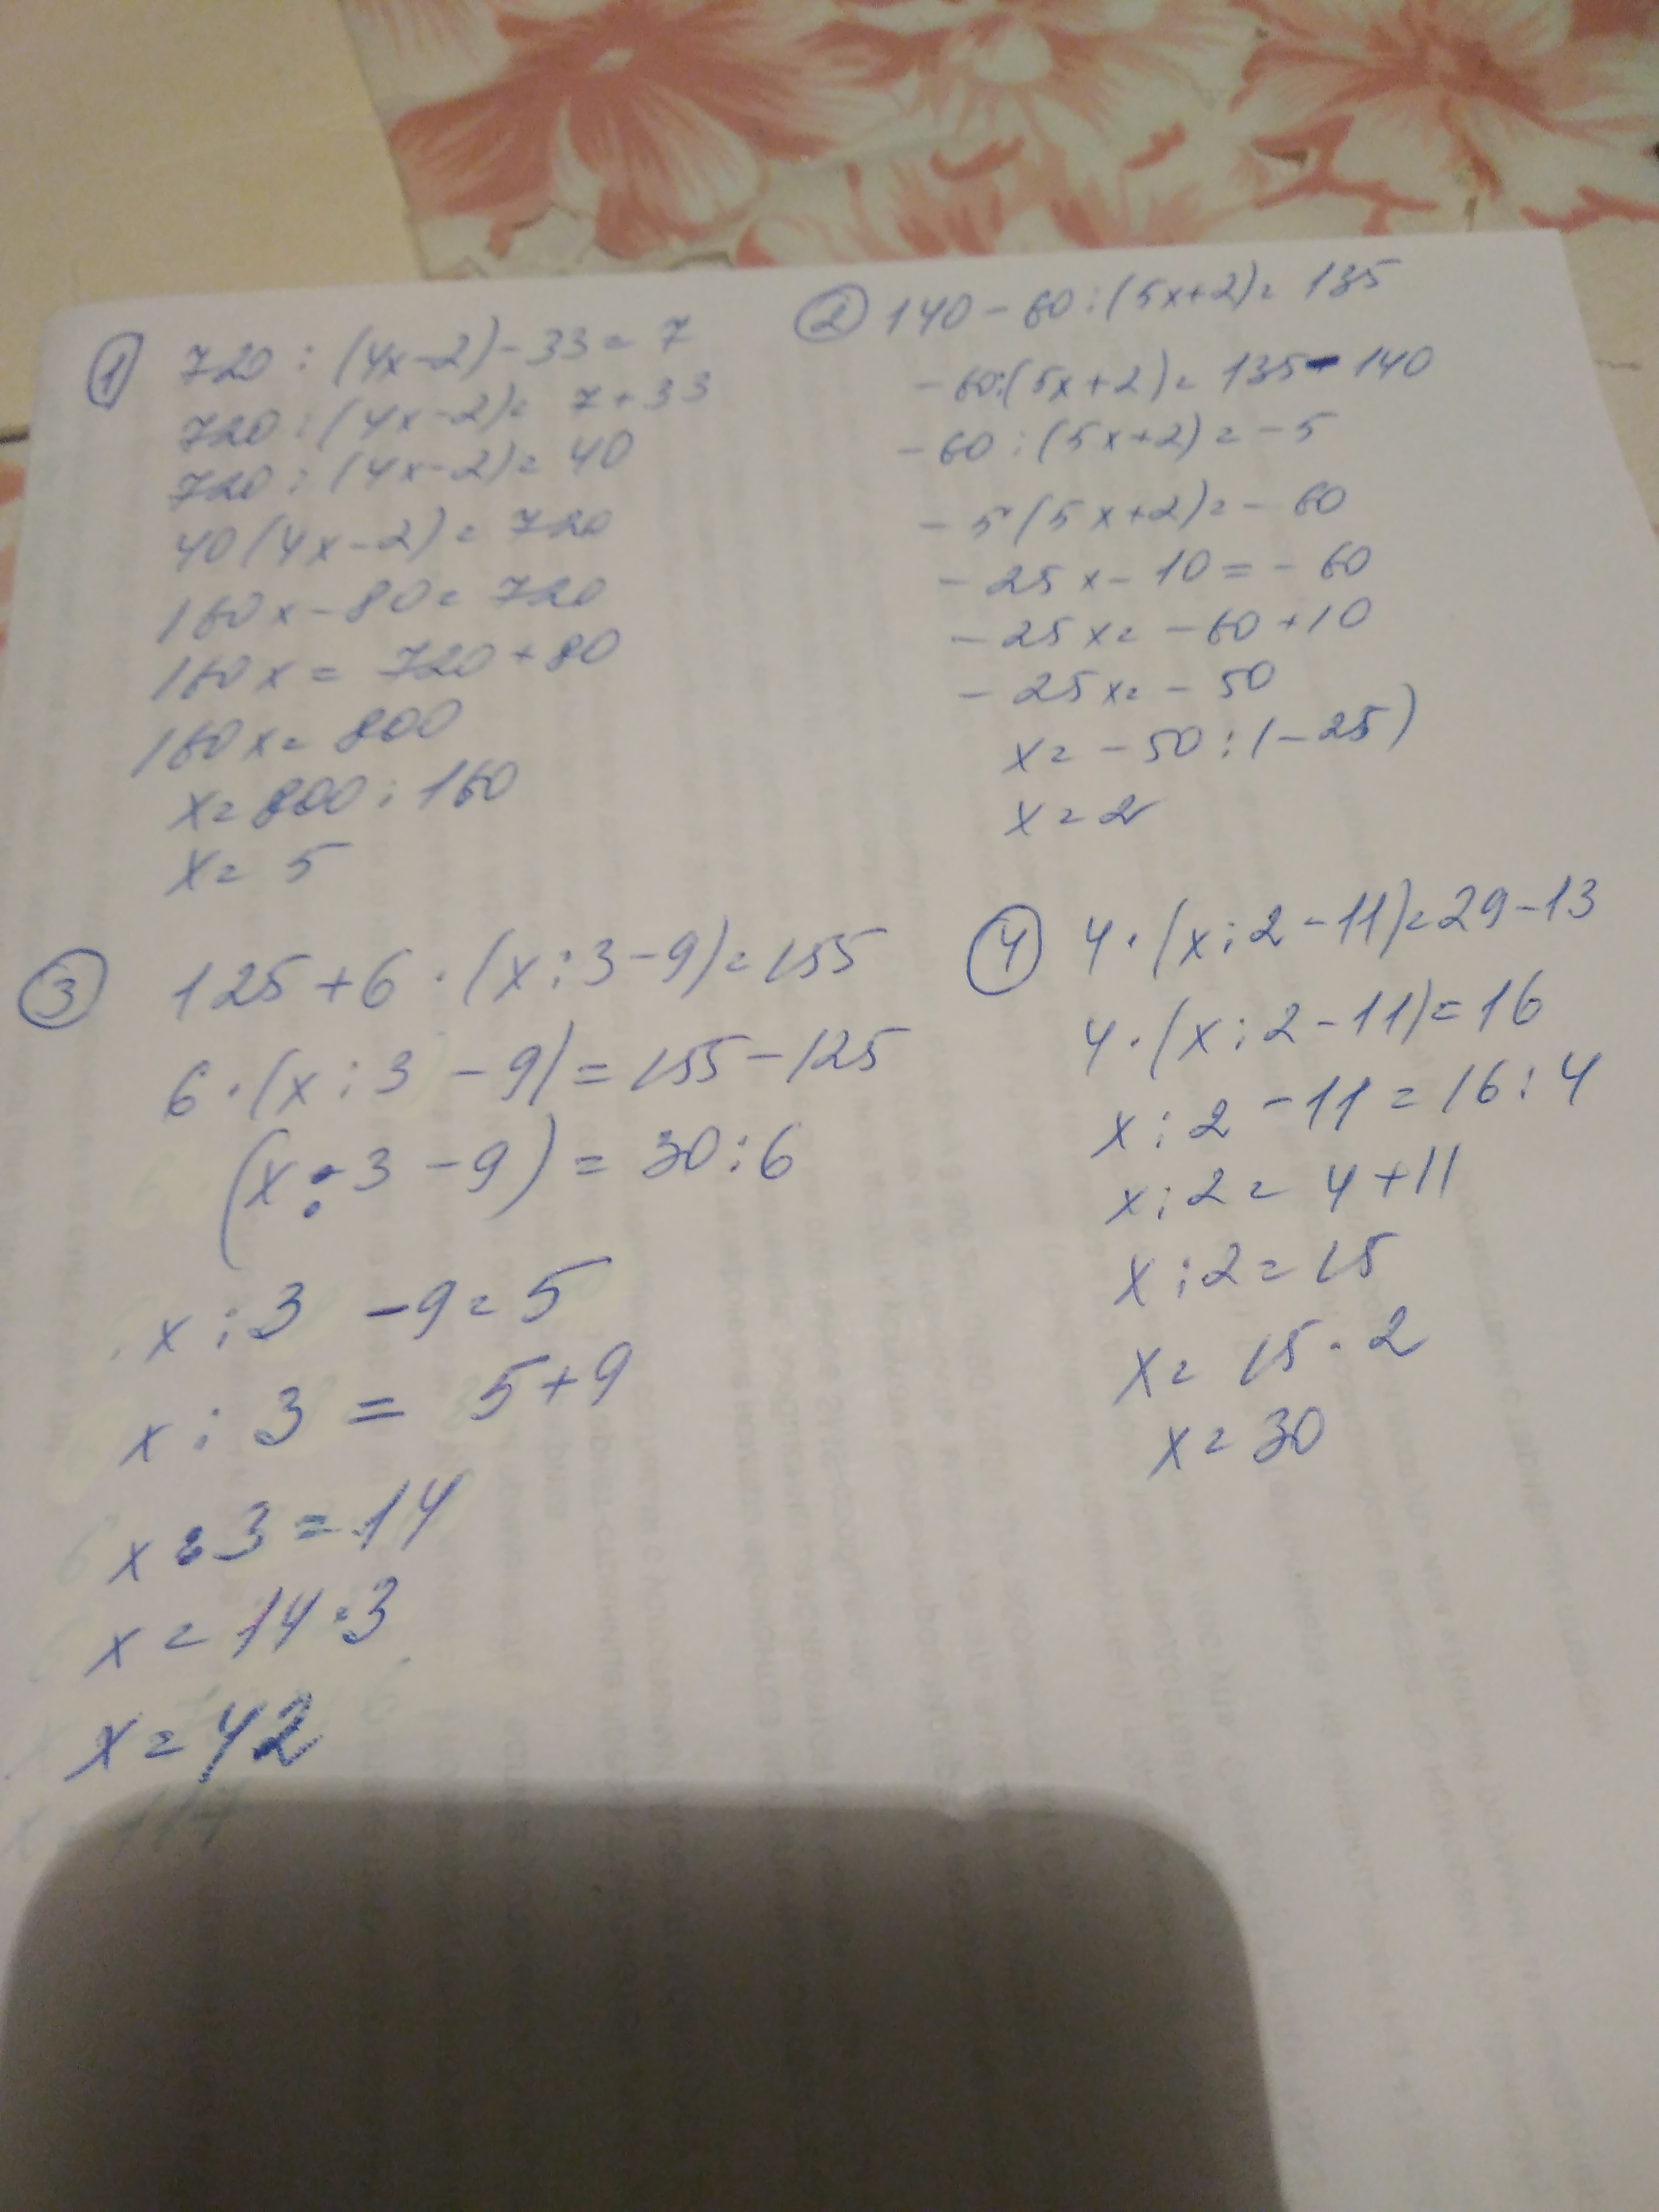 ① 720 : (4x-2)-33=7
720 : (4x-2)= 7+33
720 : (4x-2)= 40
40(4x-2)= 720
160x-80= 720
160x= 720+80
160x= 800
x=800 : 160
x= 5
② 140-60:(5x+2)= 135
-60:(5x+2)= 135-140
-60 : (5x+2)=-5
-5(5x+2)=-60
-25x-10=-60
-25x=-60+10
-25x=-50
x=-50 : (-25)
x=2
③ 125+6·(x:3-9)=155
6·(x:3-9)=155-125
(x:3-9)=30:6
x:3-9=5
x:3=5+9
x:3=14
x=14·3
x=42
④ 4·(x:2-11)=29-13
4·(x:2-11)=16
x:2-11=16:4
x:2=4+11
x:2=15
x=15·2
x=30